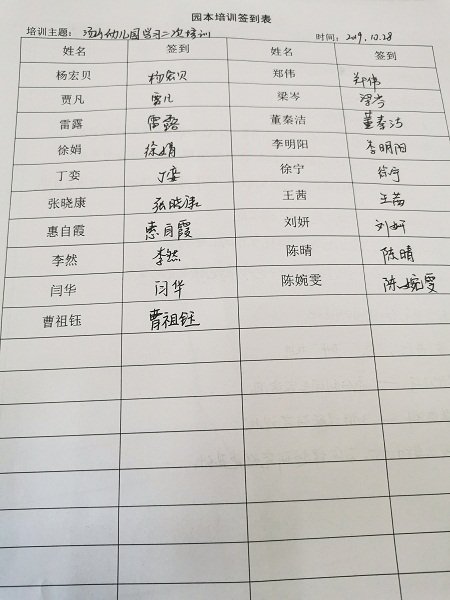 园本培训签到表
培训主题： 幼儿园学习二次培训 时间：2019.10.28
姓名 签到 姓名 签到
杨宏贝 杨宏贝 郑伟 郑伟
贾凡 贾凡 梁岑 梁岑
雷露 雷露 董秦洁 董秦洁
徐娟 徐娟 李明阳 李明阳
丁娈 丁娈 徐宁 徐宁
张晓康 张晓康 王茜 王茜
惠自霞 惠自霞 刘妍 刘妍
李然 李然 陈晴 陈晴
闫华 闫华 陈婉雯 陈婉雯
曹祖钰 曹祖钰